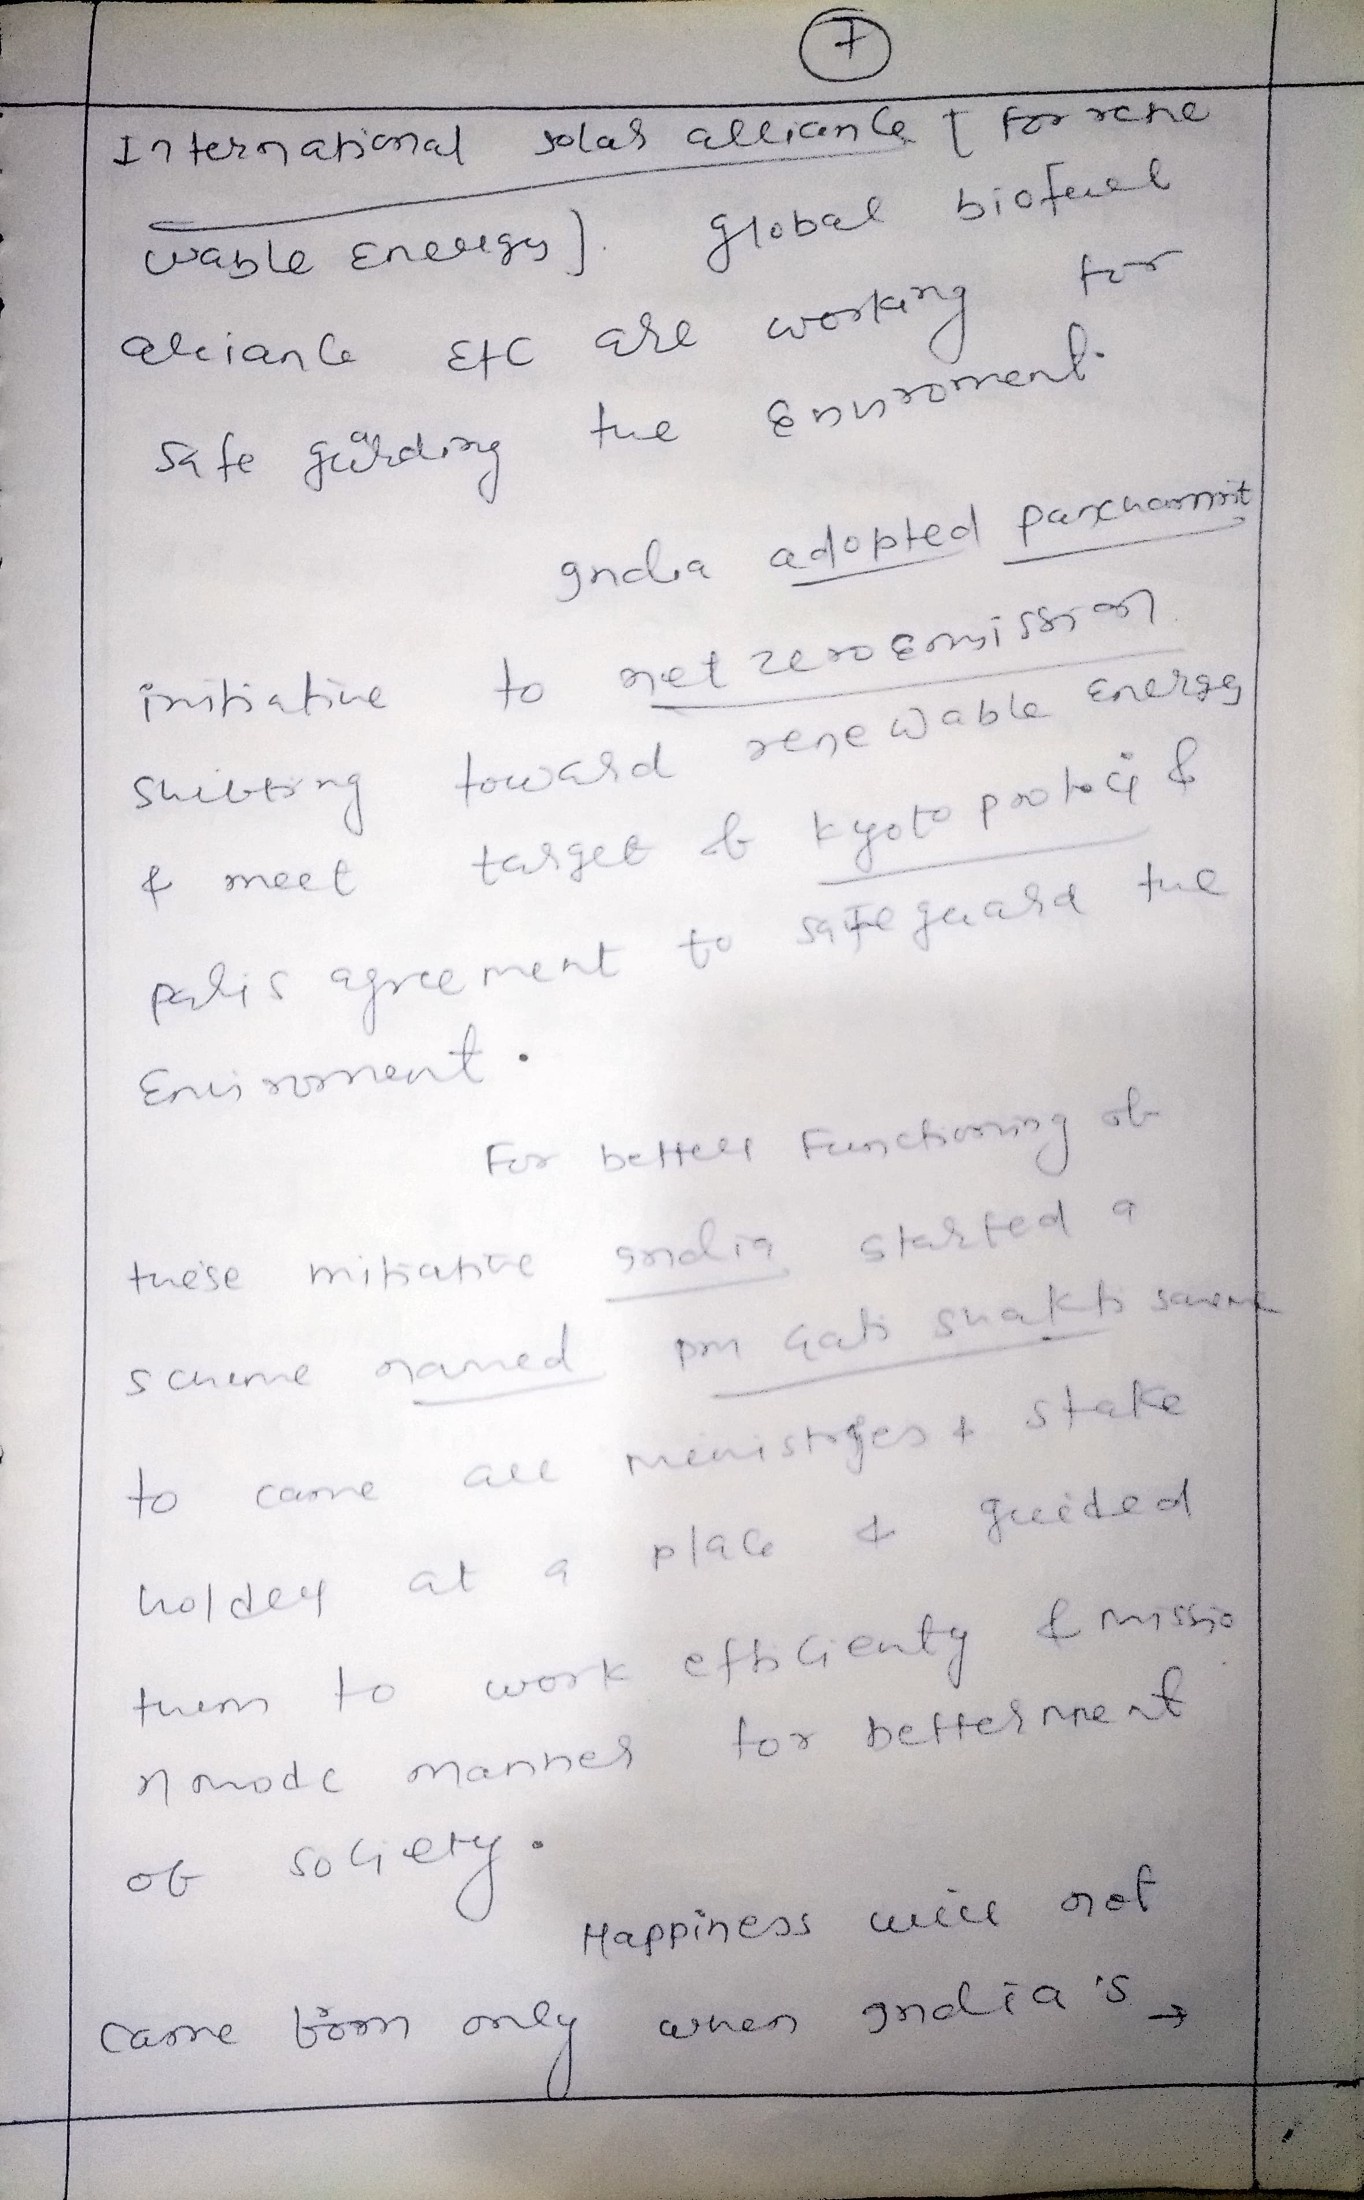 7
International solar alliance [ For rene
wable Energy]. global biofuel
alliance Etc are working for
safe garding the Enviroment.
India adopted panchamrit
initiative to net zero Emission
shifting toward renewable Energy
& meet target of kyoto protocol &
paris agreement to safe guard the
Enviroment.
For better Functioning of
these initiative India started a
scheme named pm Gati shakti scheme
to came all ministries & stake
holder at a place & guided
them to work efficienty & missio
n mode manner for betterment
of society.
Happiness will not
came from only when India's →